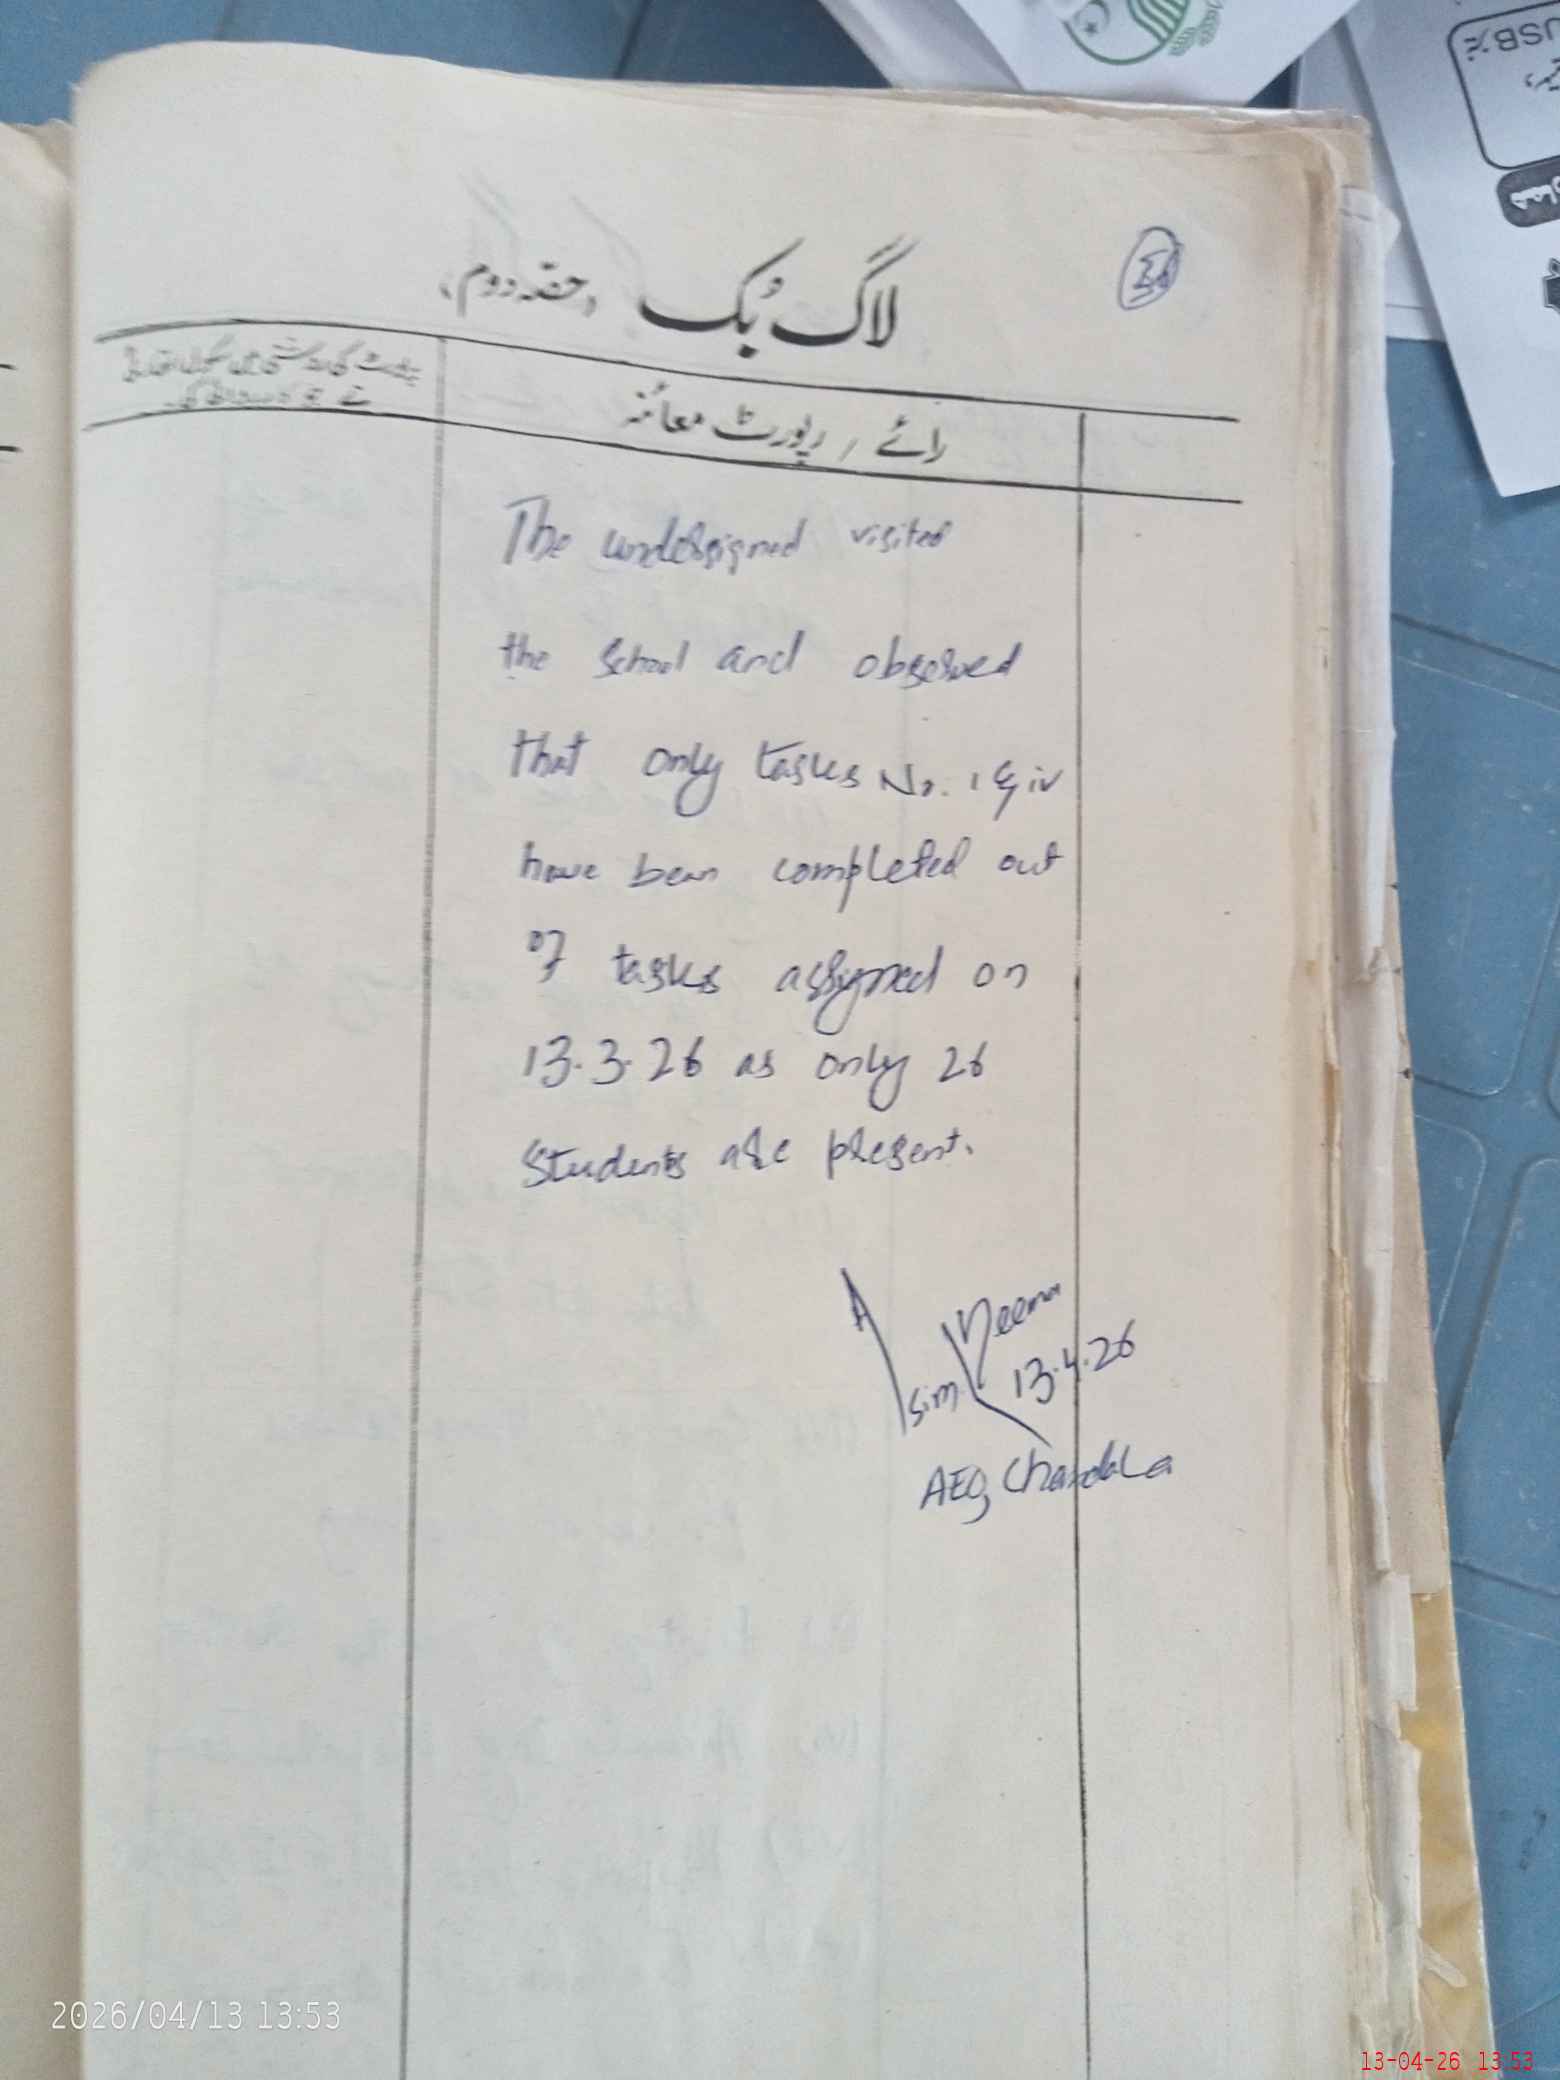 لاگ بُک (حصّہ دوم)
رائے / رپورٹ معائنہ
The undersigned visited
the school and observed
that only tasks No. i & iv
have been completed out
of tasks assigned on
13.3.26 as only 26
students are present.
Asim Neema
13.4.26
AEO, Chandala
2026/04/13 13:53
13-04-26 13:53
USB